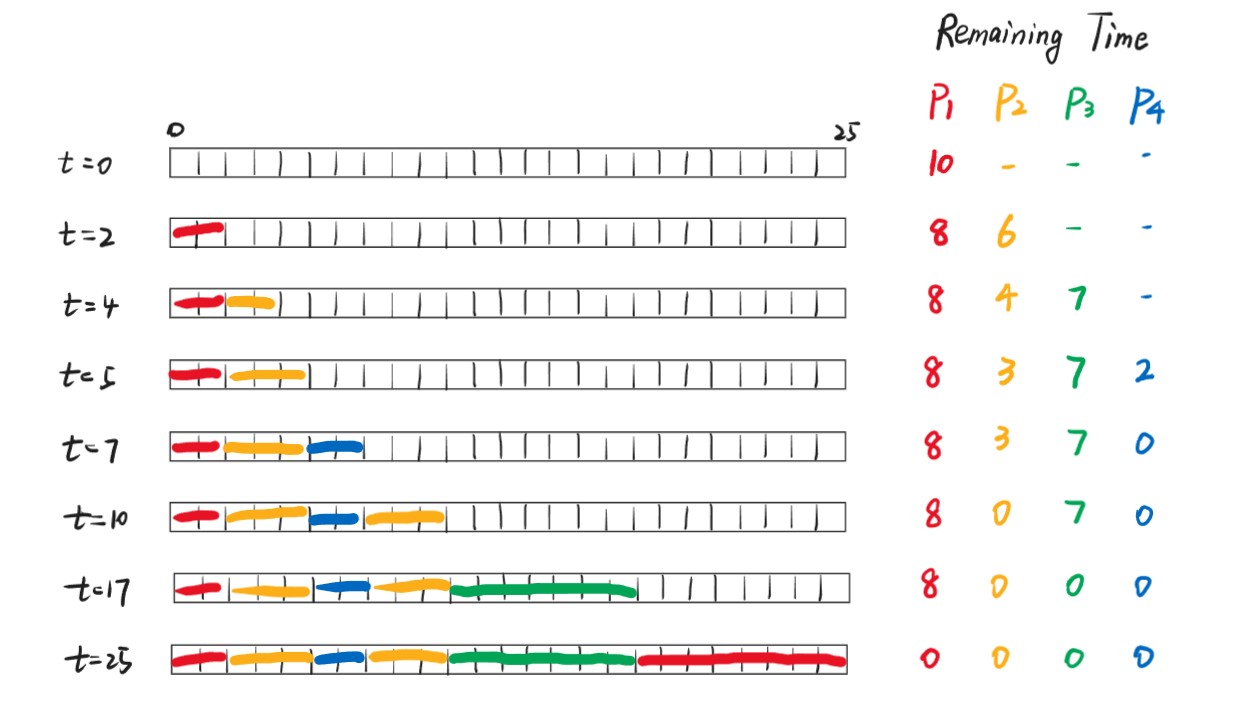 Remaining Time
P1 P2 P3 P4
0 25
t=0 10 - - -
t=2 8 6 - -
t=4 8 4 7 -
t=5 8 3 7 2
t=7 8 3 7 0
t=10 8 0 7 0
t=17 8 0 0 0
t=25 0 0 0 0